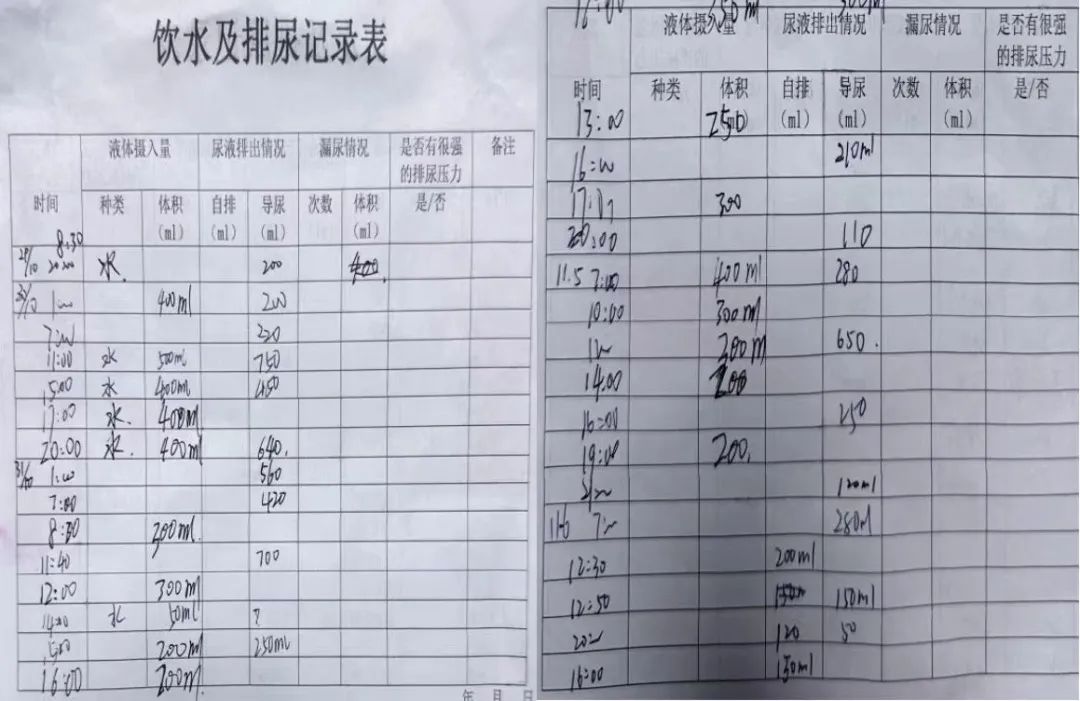 饮水及排尿记录表
液体摄入量 尿液排出情况 漏尿情况 是否有很强的排尿压力 备注
时间 种类 体积 自排 导尿 次数 体积 是/否
(ml) (ml) (ml) (ml)
8:30
20:00 水 200 400
1:00 400ml 200
7:00 220
11:00 水 500ml 750
15:00 水 400ml 450
17:00 水. 400ml
20:00 水. 400ml 640.
31/10 1:00 560
7:00 420
8:30 300ml.
11:40 700
12:00 300ml
14:00 水 50ml ?
15:00 200ml 250ml
16:00 200ml.
年 月 日
液体摄入量 尿液排出情况 漏尿情况 是否有很强的排尿压力
时间 种类 体积 自排 导尿 次数 体积 是/否
(ml) (ml) (ml)
13:00 250
16:00 210ml
17:00 300
20:00 110
11.5 7:00 400ml 280
10:00 300ml
300m 650.
14:00 200
16:00 250
19:00 200.
120ml
11.6 7:00 280ml
12:30 200ml
12:50 150ml
120 50
16:00 130ml